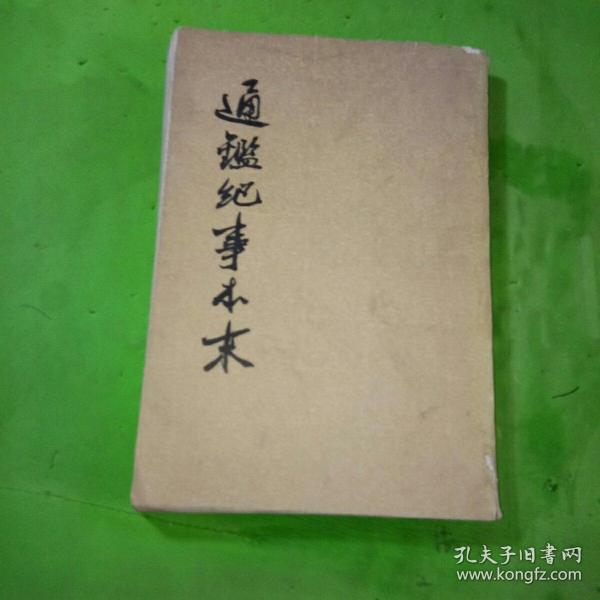 通鑑紀事本末
孔夫子旧書网
www.kongfz.com